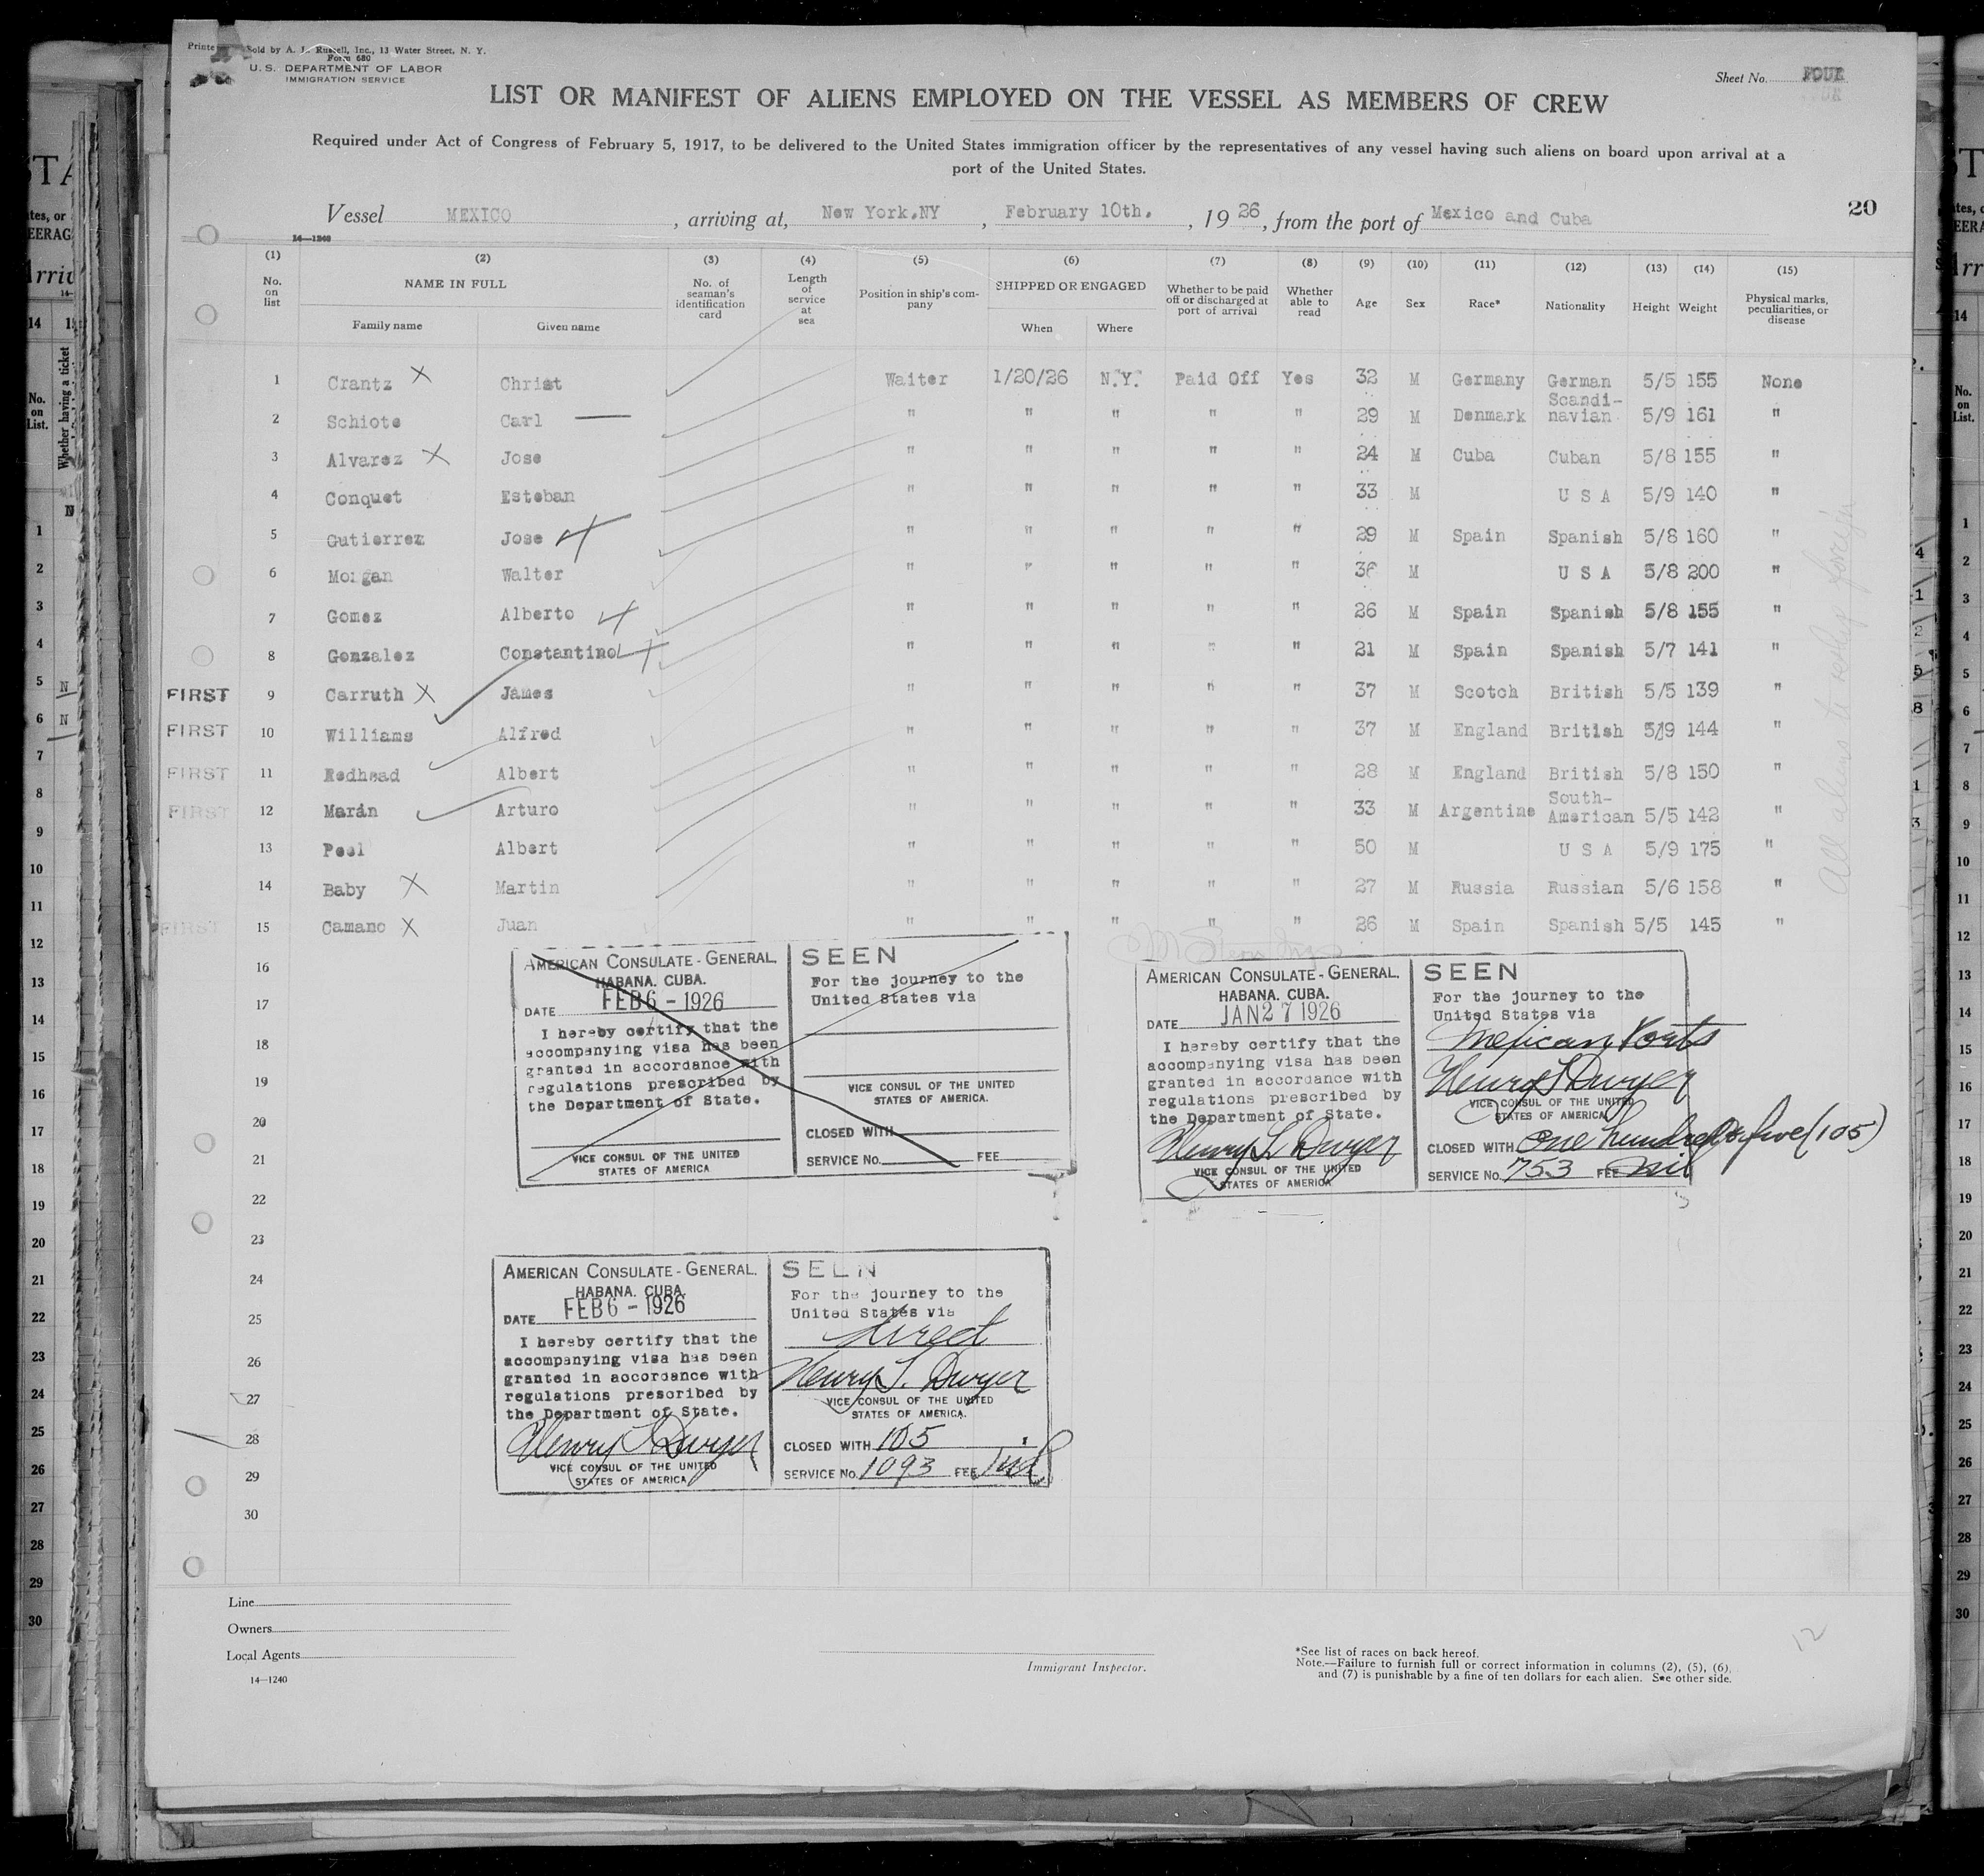 Sold by A. L. Russell, Inc., 13 Water Street, N. Y.
Form 680
U. S. DEPARTMENT OF LABOR
IMMIGRATION SERVICE
Sheet No. FOUR
LIST OR MANIFEST OF ALIENS EMPLOYED ON THE VESSEL AS MEMBERS OF CREW
Required under Act of Congress of February 5, 1917, to be delivered to the United States immigration officer by the representatives of any vessel having such aliens on board upon arrival at a
port of the United States.
Vessel MEXICO, arriving at, New York,NY, February 10th., 1926, from the port of Mexico and Cuba
20
14—1240
(1) (2) (3) (4) (5) (6) (7) (8) (9) (10) (11) (12) (13) (14) (15)
No. on list
NAME IN FULL
Family name Given name
No. of seaman's identification card
Length of service at sea
Position in ship's company
SHIPPED OR ENGAGED
When Where
Whether to be paid off or discharged at port of arrival
Whether able to read
Age Sex Race* Nationality Height Weight
Physical marks, peculiarities, or disease
1 Crantz X Christ Waiter 1/20/26 N.Y. Paid Off Yes 32 M Germany German 5/5 155 None
2 Schiote Carl — " " " " " 29 M Denmark Scandi-navian 5/9 161 "
3 Alvarez X Jose " " " " " 24 M Cuba Cuban 5/8 155 "
4 Conquet Esteban " " " " " 33 M U S A 5/9 140 "
5 Gutierrez Jose " " " " " 29 M Spain Spanish 5/8 160 "
6 Morgan Walter " " " " " 36 M U S A 5/8 200 "
7 Gomez Alberto " " " " " 26 M Spain Spanish 5/8 155 "
8 Gonzalez Constantino " " " " " 21 M Spain Spanish 5/7 141 "
FIRST 9 Carruth X James " " " " " 37 M Scotch British 5/5 139 "
FIRST 10 Williams Alfred " " " " " 37 M England British 5/9 144 "
FIRST 11 Redhead Albert " " " " " 28 M England British 5/8 150 "
FIRST 12 Marán Arturo " " " " " 33 M Argentine South-American 5/5 142 "
13 Peel Albert " " " " " 50 M U S A 5/9 175 "
14 Baby X Martin " " " " " 27 M Russia Russian 5/6 158 "
FIRST 15 Camano X Juan " " " " " 26 M Spain Spanish 5/5 145 "
All aliens to reship foreign
16
17
18
19
20
21
22
23
24
25
26
27
28
29
30
AMERICAN CONSULATE-GENERAL.
HABANA. CUBA.
DATE FEB 6 - 1926
I hereby certify that the
accompanying visa has been
granted in accordance with
regulations prescribed by
the Department of State.
VICE CONSUL OF THE UNITED
STATES OF AMERICA
SEEN
For the journey to the
United States via
VICE CONSUL OF THE UNITED
STATES OF AMERICA.
CLOSED WITH
SERVICE No. FEE
AMERICAN CONSULATE-GENERAL.
HABANA. CUBA.
DATE JAN 27 1926
I hereby certify that the
accompanying visa has been
granted in accordance with
regulations prescribed by
the Department of State.
Henry S. Dwyer
VICE CONSUL OF THE UNITED
STATES OF AMERICA
SEEN
For the journey to the
United States via
Mexican Ports
Henry S Dwyer
VICE CONSUL OF THE UNITED
STATES OF AMERICA
CLOSED WITH One hundred & five (105)
SERVICE No. 753 FEE nil
AMERICAN CONSULATE-GENERAL.
HABANA. CUBA.
DATE FEB 6 - 1926
I hereby certify that the
accompanying visa has been
granted in accordance with
regulations prescribed by
the Department of State.
Henry S Dwyer
VICE CONSUL OF THE UNITED
STATES OF AMERICA
SEEN
For the journey to the
United States via
direct
Henry S. Dwyer
VICE CONSUL OF THE UNITED
STATES OF AMERICA.
CLOSED WITH 105
SERVICE No. 1093 FEE nil
Line
Owners
Local Agents
14—1240
Immigrant Inspector.
*See list of races on back hereof.
Note.—Failure to furnish full or correct information in columns (2), (5), (6),
and (7) is punishable by a fine of ten dollars for each alien. See other side.
12